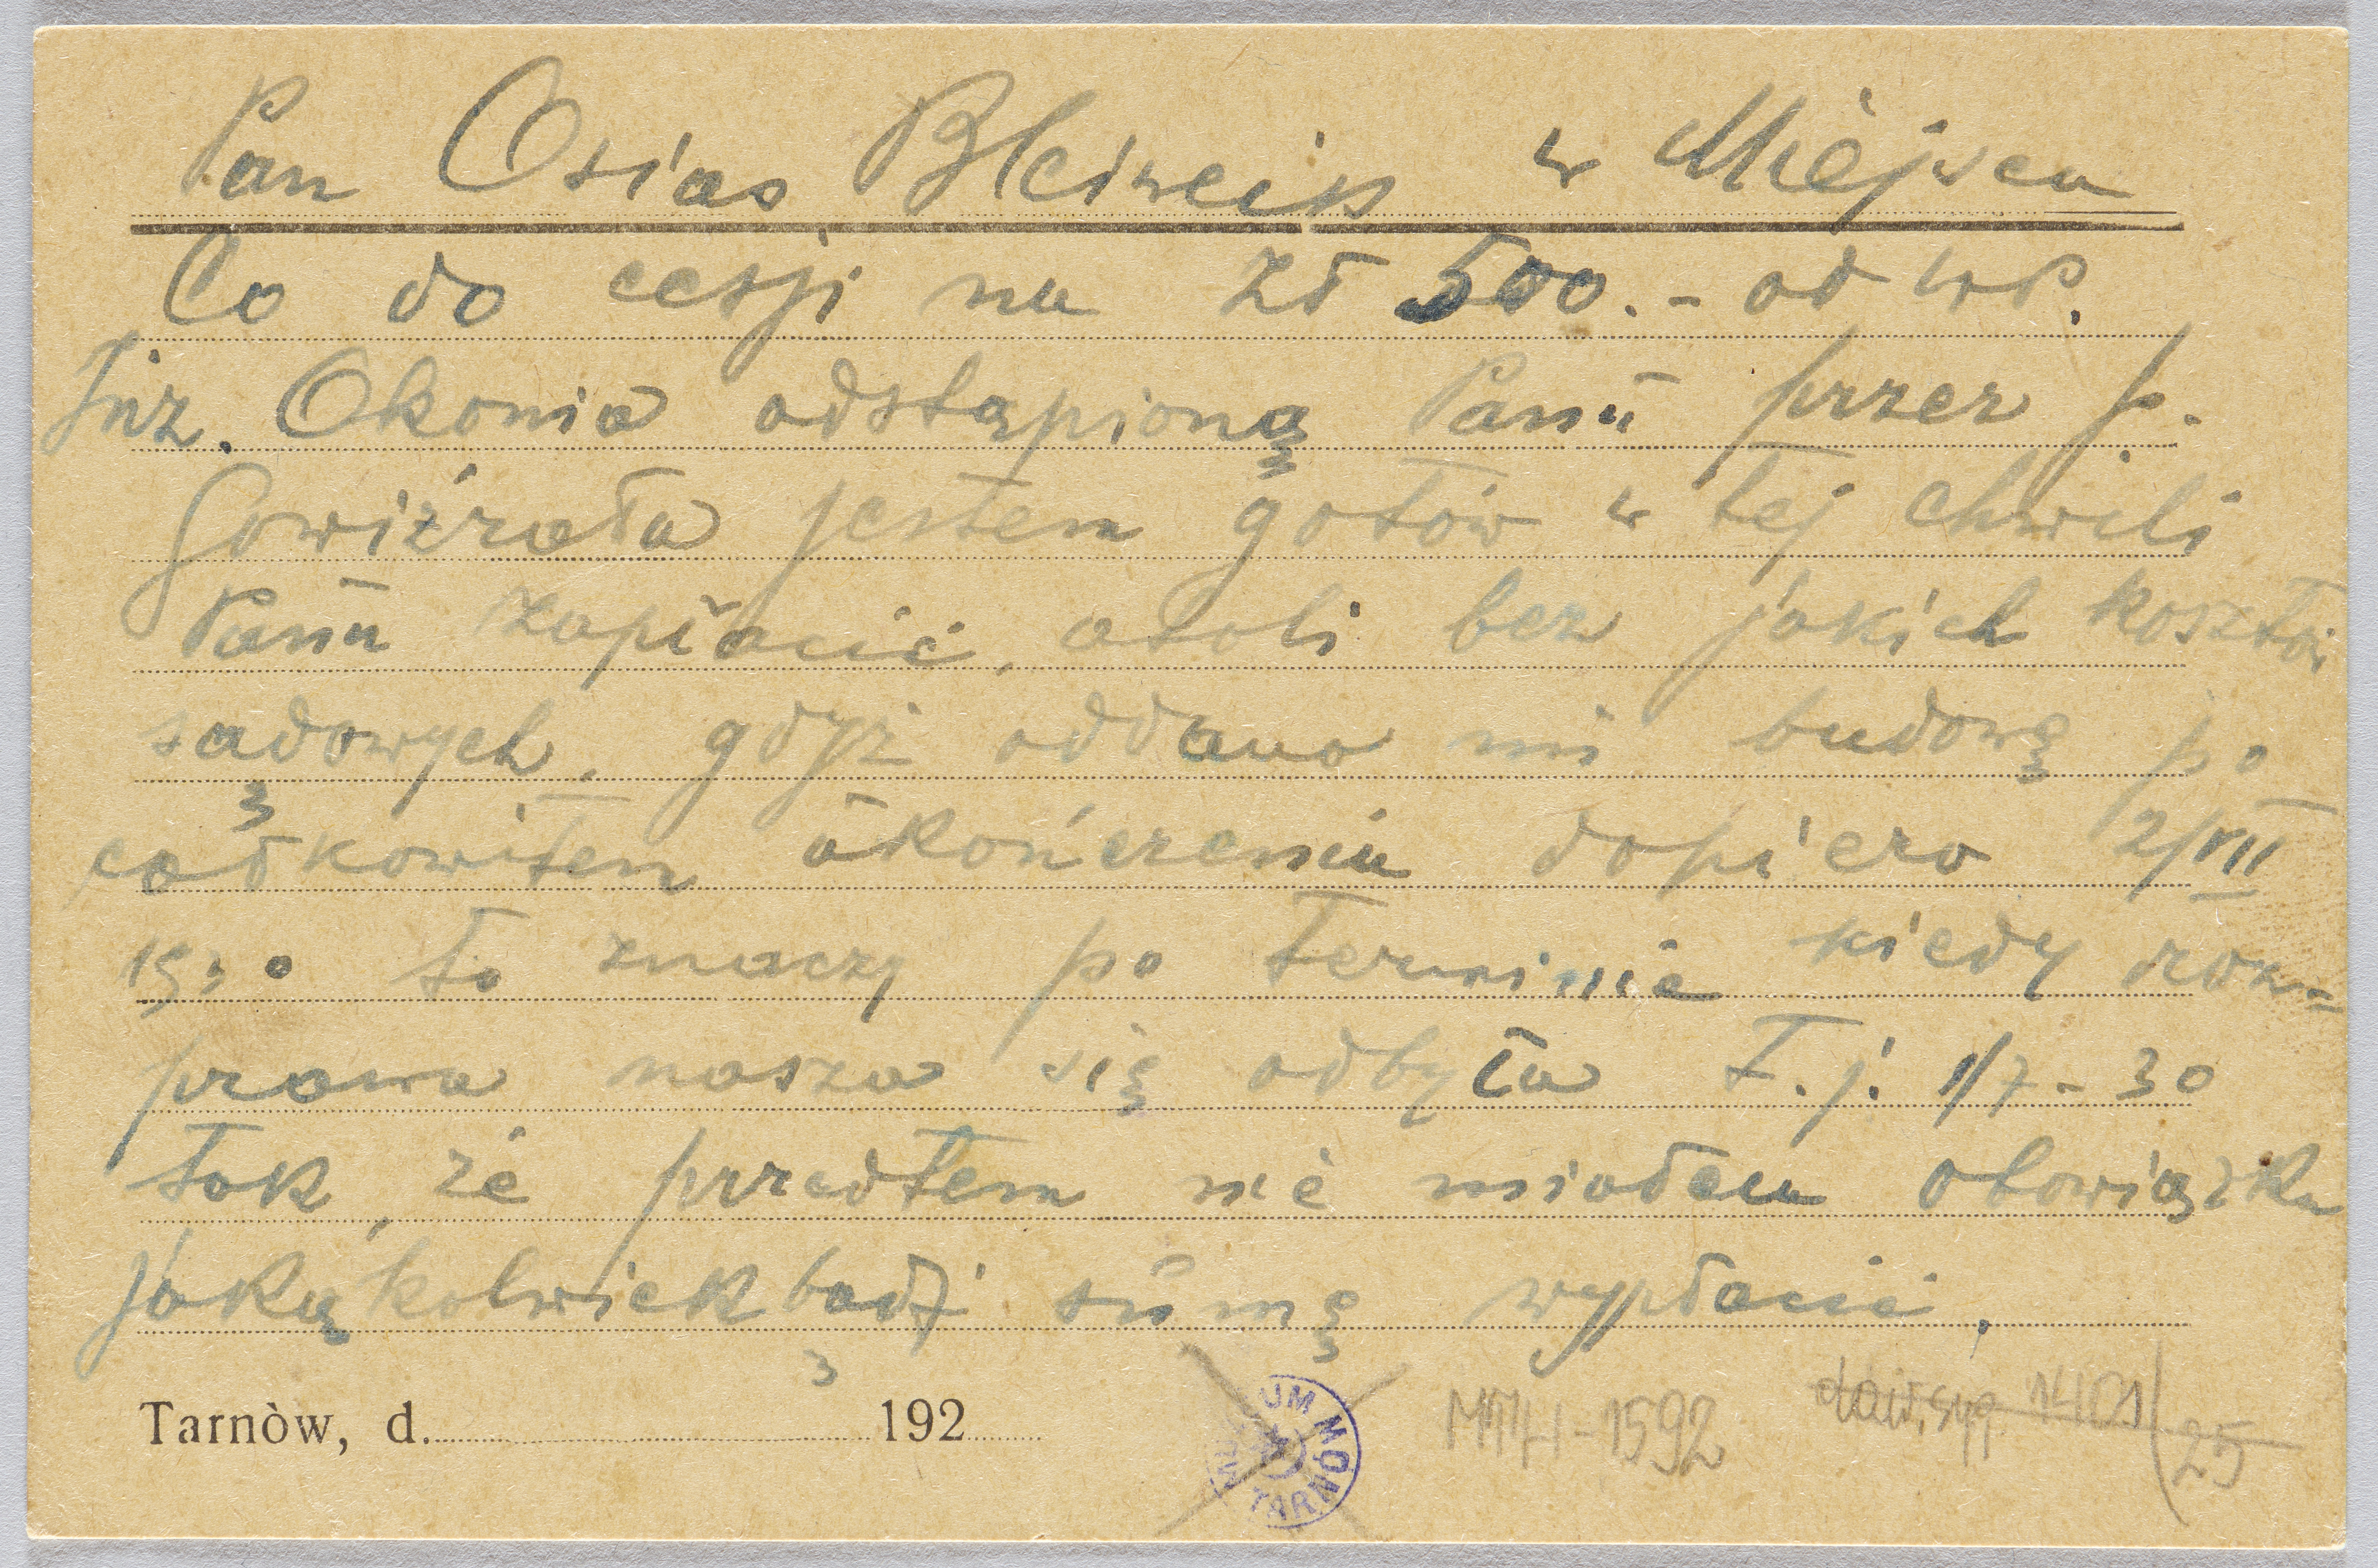 Pan Osias Bleiweiss w Miejscu
Co do cesji na zł 500.- od WP.
Inż. Okonia odstąpioną Panu przez p.
Gowiźrała jestem gotów w tej chwili
Panu zapłacić, atoli bez jakich kosztów
sądowych, gdyż oddano mi budowę po
całkowitem ukończeniu dopiero 2/VII
1930 to znaczy po terminie kiedy roz=
prawa nasza się odbyła t.j. 1/7-30
tak, że przedtem nie miałem obowiązku
jakąkolwiekbądź sumę wypłacić.
Tarnòw, d. 192
MUZEUM TARNÓW
MT-H-1592 daw. syg. 1401/25